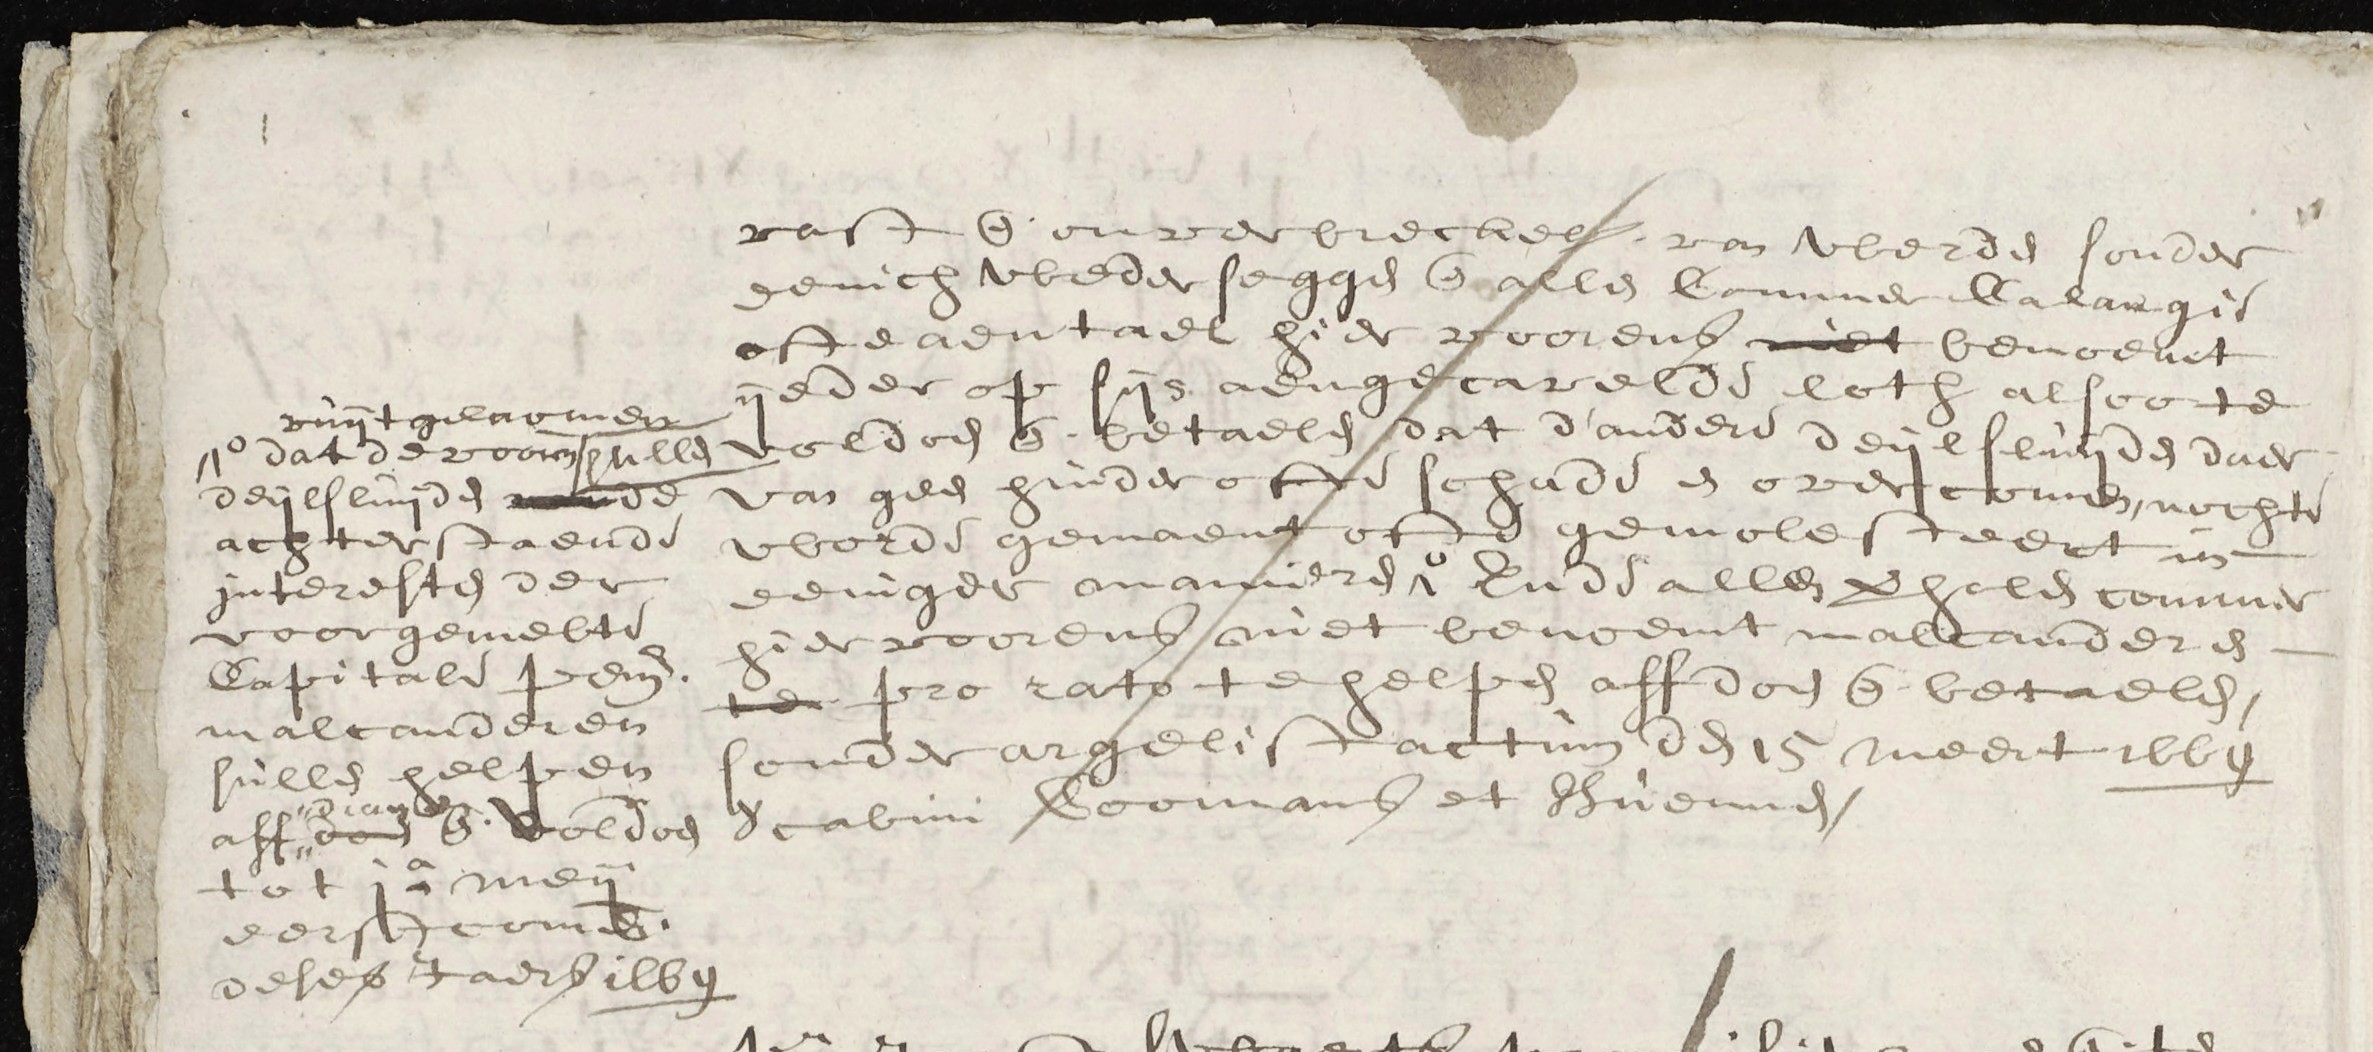 vast en onverbreckel. van weerden sonder
eenich wederseggen en alle Commer Calangie
ofte aentael hier voorens niet benoemt
ijeder op sijs aengecavelde loth alsoo te
voldoen en betaelen dat d'andere deijlsluijden daer
van geen hinder ofte schade en overcomen, nochte
worde gemaent ofte gemolesteert in
eeniger manieren Ende alle commer
hier voorens niet benoemt malcanderen
te pro rato te helpen aff doen en betaelen,
sonder argelist actum den 15 meert 1669
Scabini Coomans et
vuijtgenomen
dat de voors sullen
deijlsluijden de
achterstaende
interesten der
voorgemelte
Capitale penn.
malcanderen
sullen helpen
aff doen en voldoen
tot meij
eerstcomen.
deses jaers 1669